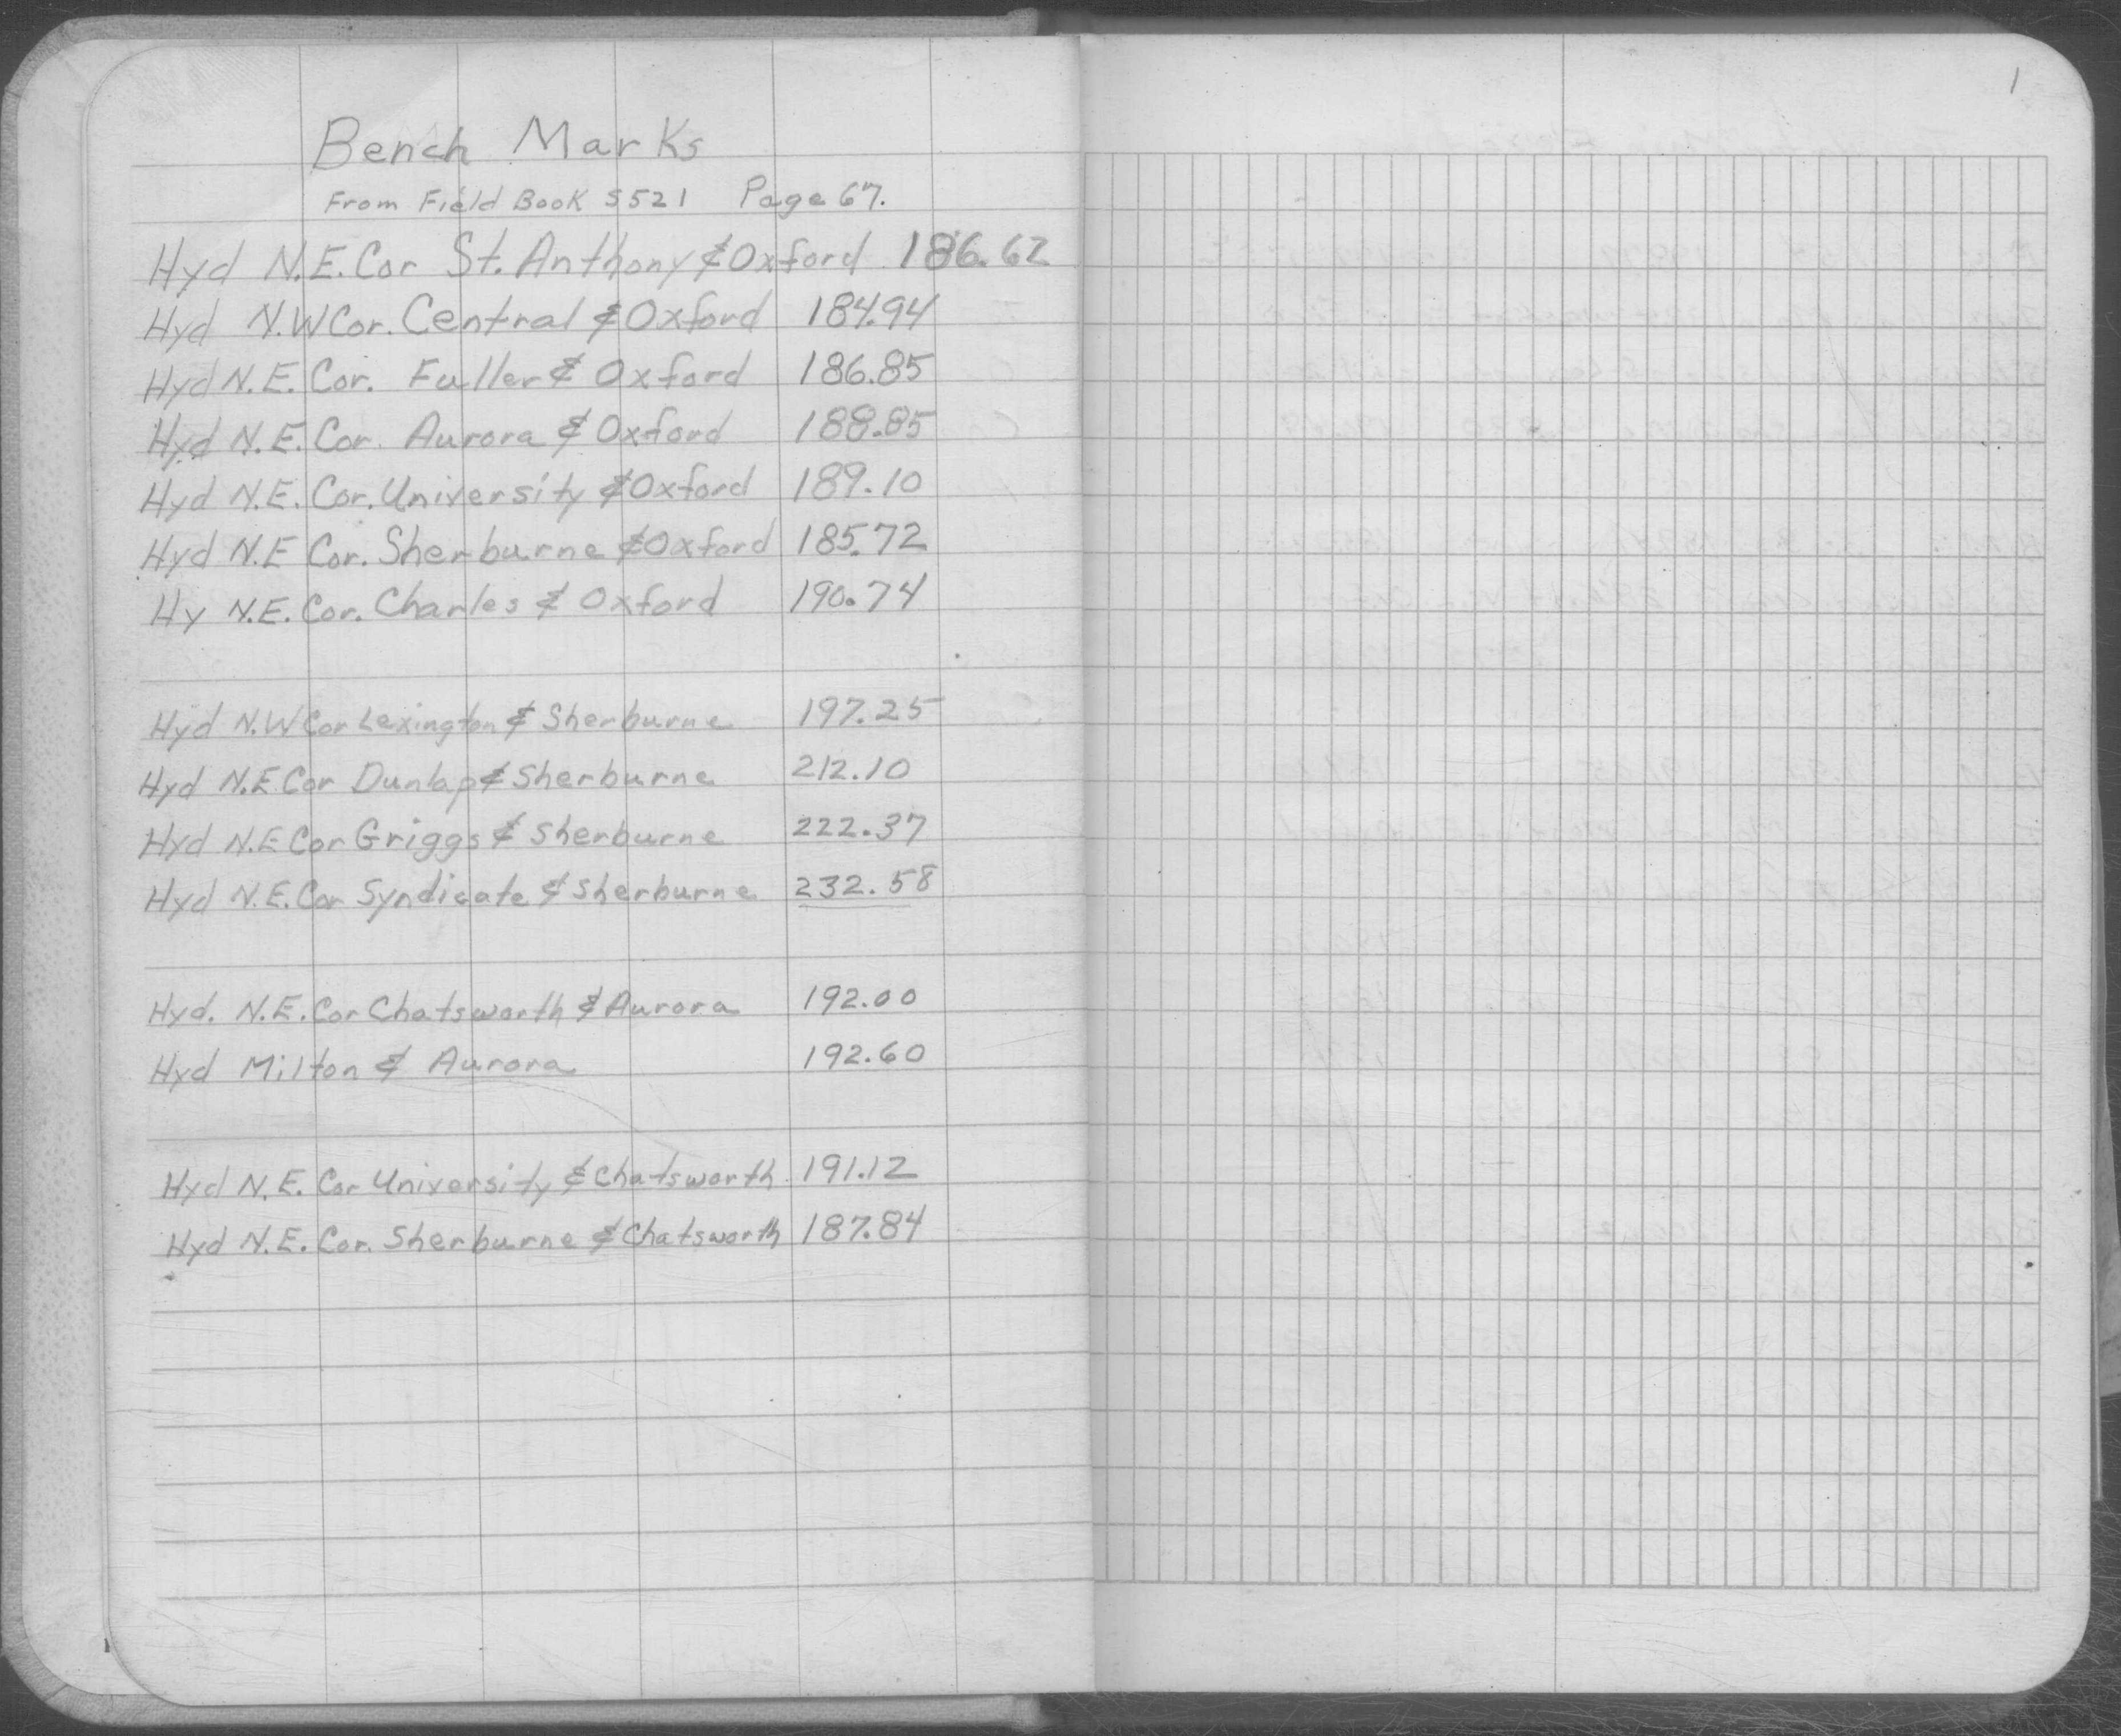 Bench Marks
From Field Book 5521 Page 67.
Hyd N.E. Cor St. Anthony & Oxford 186.62
Hyd N.W Cor. Central & Oxford 184.94
Hyd N.E. Cor. Fuller & Oxford 186.85
Hyd N.E. Cor. Aurora & Oxford 188.85
Hyd N.E. Cor. University & Oxford 189.10
Hyd N.E Cor. Sherburne & Oxford 185.72
Hy N.E. Cor. Charles & Oxford 190.74
Hyd N.W Cor Lexington & Sherburne 197.25
Hyd N.E Cor Dunlap & Sherburne 212.10
Hyd N.E Cor Griggs & Sherburne 222.37
Hyd N.E. Cor Syndicate & Sherburne 232.58
Hyd. N.E. Cor Chatsworth & Aurora 192.00
Hyd Milton & Aurora 192.60
Hyd N.E. Cor University & Chatsworth 191.12
Hyd N.E. Cor. Sherburne & Chatsworth 187.84
1